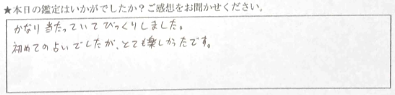 ★本日の鑑定はいかがでしたか？ご感想をお聞かせください。
かなり当たっていてびっくりしました。
初めての占いでしたが、とても楽しかったです。